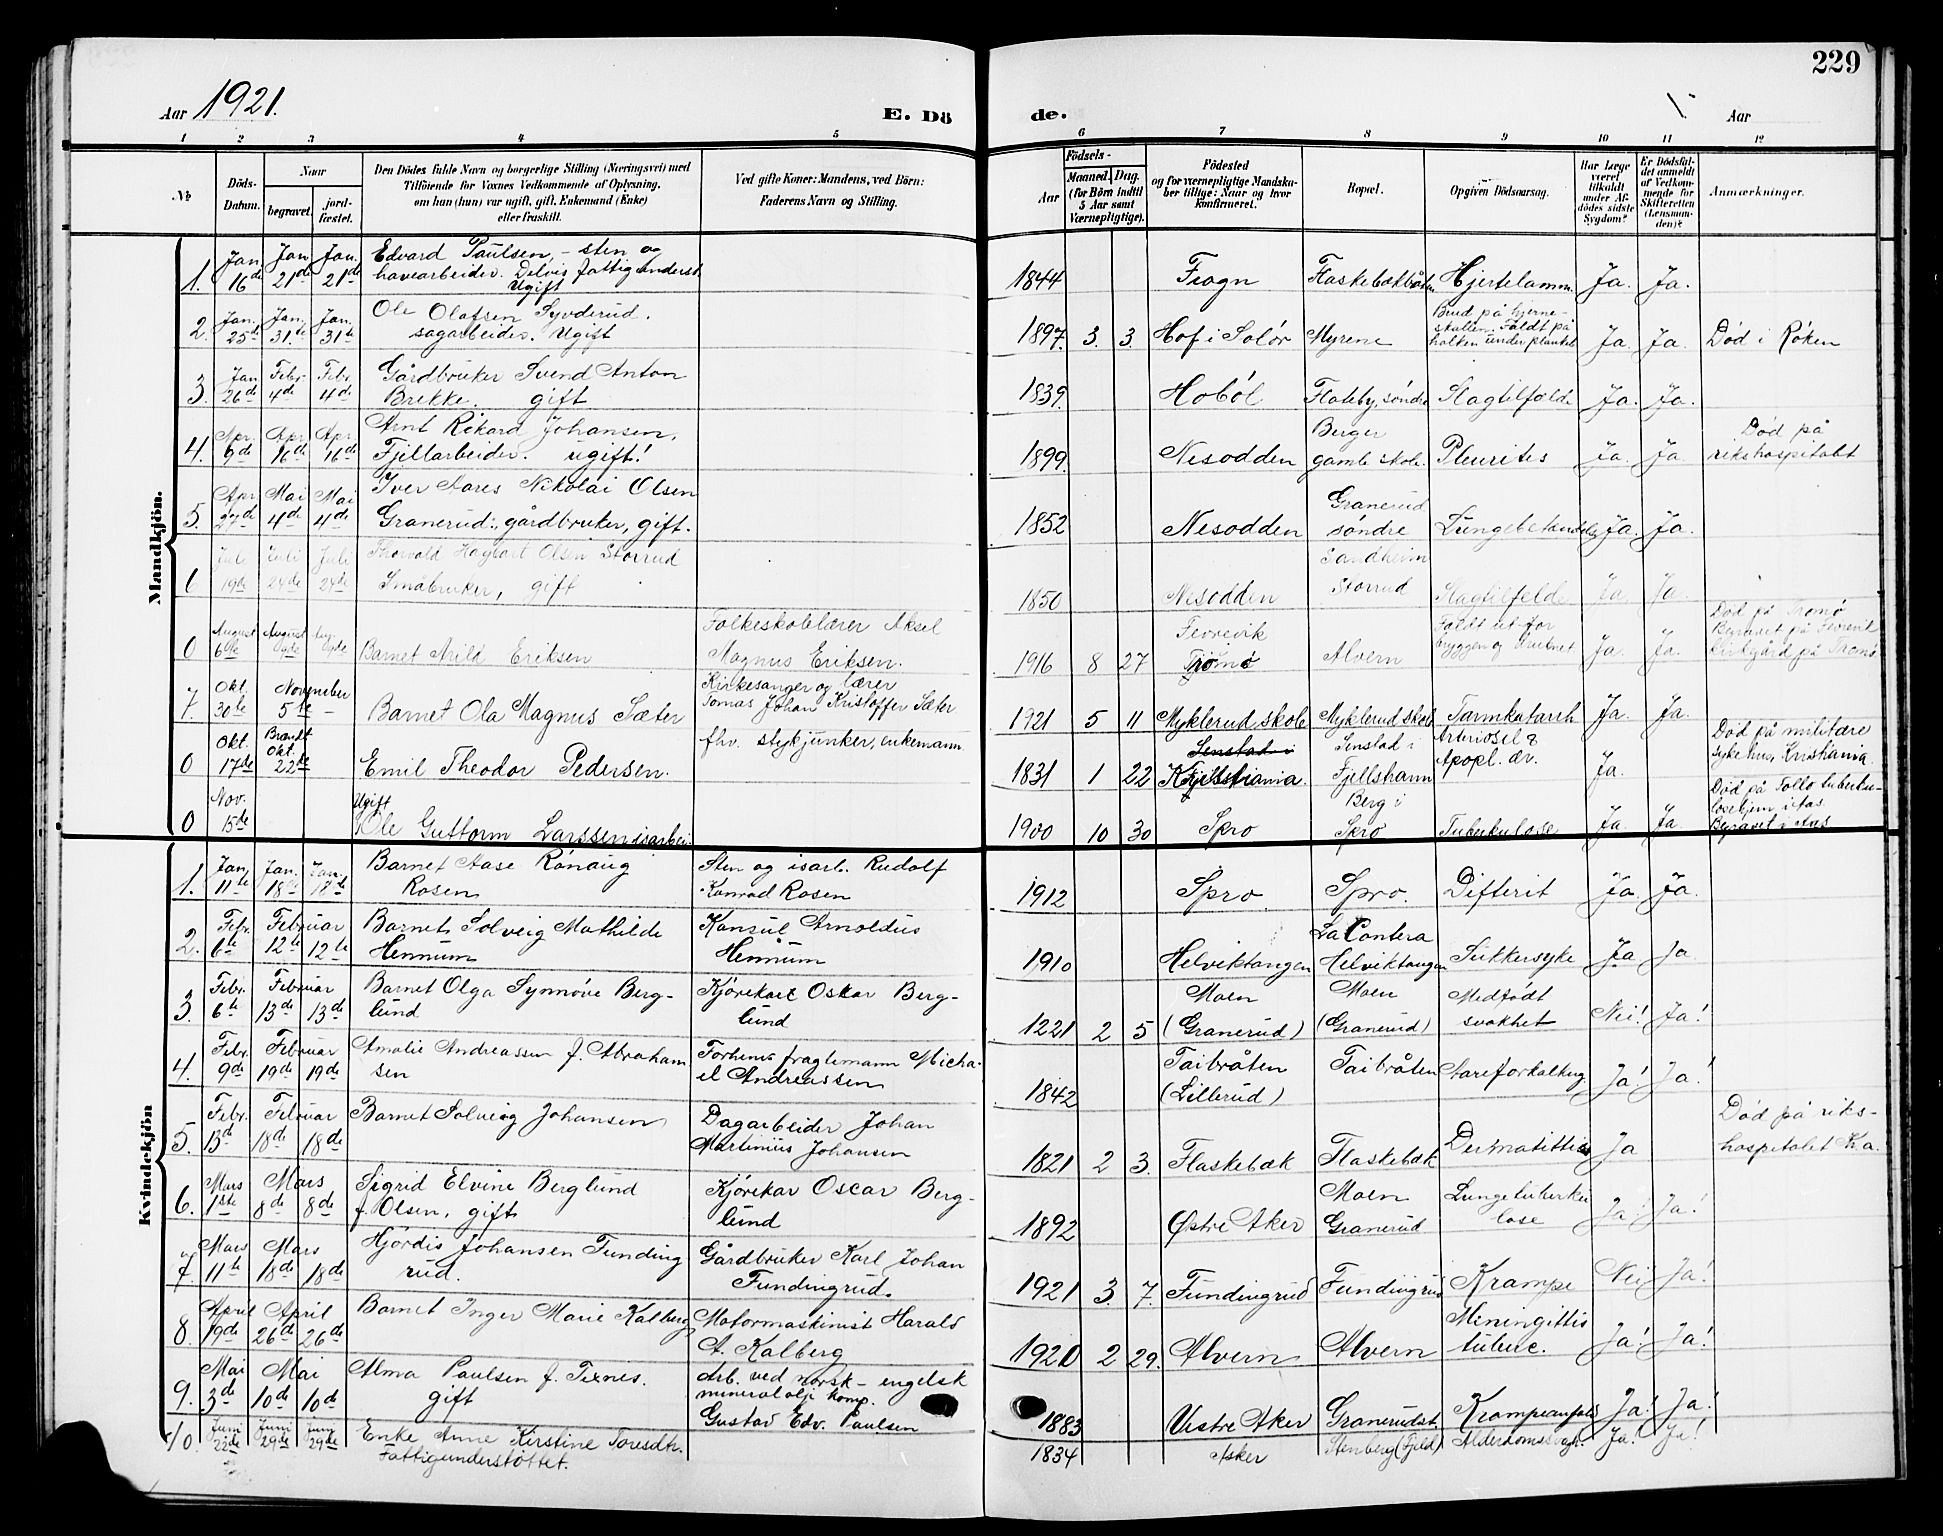 229
Aar 1921. E. Dö de. Aar
1 2 3 4 5 6 7 8 9 10 11 12
No. Döds-Datum. Naar begravet. jord-fæstet. Den Dödes fulde Navn og borgerlige Stilling (Næringsvei) med Tilföiende for Voxnes Vedkommende af Oplysning, om hun (hun) var ugift, gift, Enkemand (Enke) eller fraskilt. Ved gifte Koner: Mandens, ved Börn: Faderens Navn og Stilling.
Födsels- Aar Maaned. Dag. (for Börn indtil 5 Aar samt Værnepligtige). Födested og for værnepligtige Mandskaber tillige: Naar og hvor konfirmeret. Bopæl. Opgiven Dödsaarsag. Har Læge været tilkaldt under Afdödes sidste Sygdom? Er Dödsfaldet anmeldt af Vedkommende for Skifteretten (Lensmanden)? Anmærkninger.
Mandkjön.
1. Jan 16de Jan 21de Jan. 21de Edvard Paulsen, – sten og havearbeider. Delvis fattigunderst. Ugift 1844 Frogn Flaskebækbråten Hjertelamm. Ja. Ja.
2. Jan. 25de Jan. 31te Jan. 31te Ole Olafsen Syvderud. sagarbeider. Ugift 1897. 3. 3. Hof i Solør Myrene Brud på hjerneskallen. Faldt på holken under planket Ja. Ja. Død i Røken
3. Jan 26de Febr. 4de Febr. 4de Gårdbruker Svend Anton Brekke. gift 1839. Hobøl Flateby, søndre Slagtilfælde Ja. Ja.
4. Apr. 9de Apr 16de Apr 16de Arnt Rikard Johansen, Fjellarbeider. ugift! 1899. Nesodden Berger gamle skole. Pleurites Ja. Ja Død på rikshospitalet
5. Apr 27de Mai 4de Mai 4de Iver Aares Nikolai Olsen Granerud:, gårdbruker, gift. 1852 Nesodden Granerud søndre Lungebetændelse Ja. Ja.
6 Juli 19de Juli 24de Juli 24de Thorvald Hagbart Olsen Storrud Småbruker, gift 1850 Nesodden Sandheim Storrud Slagtilfelde Ja. Ja.
0 August 6te August 9de Aug. 9de Barnet Arild Eriksen Folkeskolelærer Aksel Magnus Eriksen. 1916 8 27 Fevrevik Tromø Alvern Faldt ut for bryggen og druknet Ja. Ja. Død på Tromø Begravet på Fevrevik kirkgård på Tromø
7. Okt 30te November 5te – Barnet Ola Magnus Sæter Kirkesanger og lærer Tomas Johan Kristoffer Sæter 1921 5 11 Myklerud skole Myklerud skole Tarmkatarrh Ja. Ja.
0 Okt. 17de Brændt Okt. 22de Emil Theodor Pedersen. fhv. stykjunker, enkemann 1831 1 22 Senstad i Kristiania. Senstad i Fjellstrann Arteriosel & Apopl. dr. Ja. Død på militære sykehus, Kristiania
0 Nov. 15de Ugift Ole Guttorm Larssen isarbei. 1900 10 30 Spro Berg i Spro Tuberkulose Ja. Ja. Død på Follo tuberkulosehjem i Aas Begravet i Aas
Kvindekjön
1. Jan 11te Jan. 18de Jan. 18te Barnet Aase Rønaug Rosen Sten og isarb. Rudolf Konrad Rosen 1912 Spro. Spro. Difterit Ja. Ja.
2. Febr. 6te Februar 12te 12te Barnet Solveig Mathilde Hennum Konsul Arnoldus Hennum 1910 Helviktangen La Contera Helviktangen Sukkersyke Ja Ja
3. Febr. 6te Februar 13de 13de Barnet Olga Synnøve Berglund Kjørekar Oskar Berglund 1221 2 5 Moen (Granerud) Moen (Granerud) Medfødt svakhet Nei! Ja!
4. Febr. 9de Februar 19de 19de Amalie Andreassen f. Abrahamsen Forhenv. fraglemann Michael Andreassen 1842 Taibråten (Lillerud) Taibråten Aareforkalkng. Ja! Ja!
5. Febr. 13de Februar 18de 18de Barnet Solveig Johansen Dagarbeider Johan Martinius Johansen 1821 2 3. Flaskebæk Flaskebæk Dermatittis Ja Død på rikshospitalet K.a.
6. Mars 1ste Mars 8de 8de Sigrid Elvine Berglund f. Olsen, gift Kjørekar Oscar Berglund 1892 Østre Aker Moen Granerud Lungetuberkulose Ja! Ja!
7 Mars 11te Mars 18de 18de Hjørdis Johansen Fundingrud. Gårdbruker Karl Johan Fundingrud. 1921 3. 7. Fundingrud Fundingrud Krampe Nei Ja!
8. April 19de April 26de 26de Barnet Inger Marie Kalberg Motormaskinist Harald A. Kalberg 1920 2 29. Alvern Alvern Miningittis tuberc. Ja! Ja!
9. Mai 3de Mai 10de 10de Alma Paulsen f. Texnes. gift Arb. ved norsk – engelsk mineralolje komp. Gustav Edv. Paulsen 1883 Vestre Aker Granerudst. Krampeanfald Ja! Ja!
10. Juni 22de Juni 29de Juni 29de Enke Anne Kirstine Toresdtr. Fattigunderstøttet. 1834 Asker Stenberg (Fjeld) Alderdomssvagh. Ja! Ja!